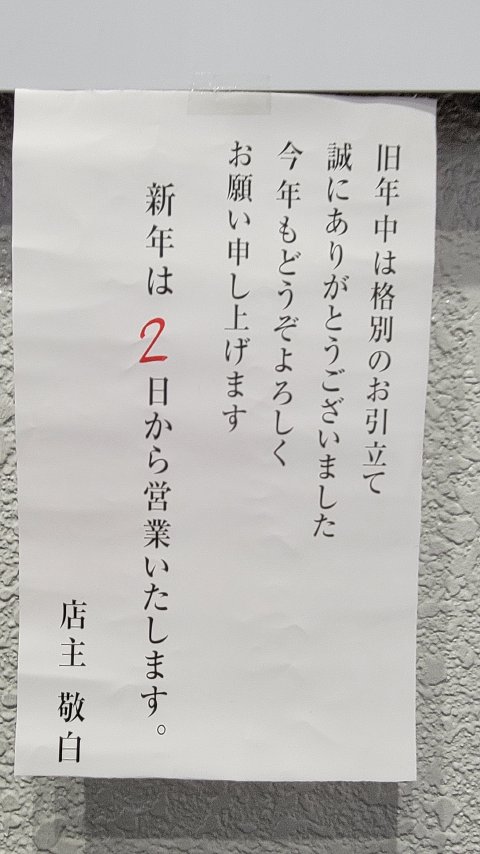 旧年中は格別のお引立て
誠にありがとうございました
今年もどうぞよろしく
お願い申し上げます
新年は2日から営業いたします。
店主 敬白